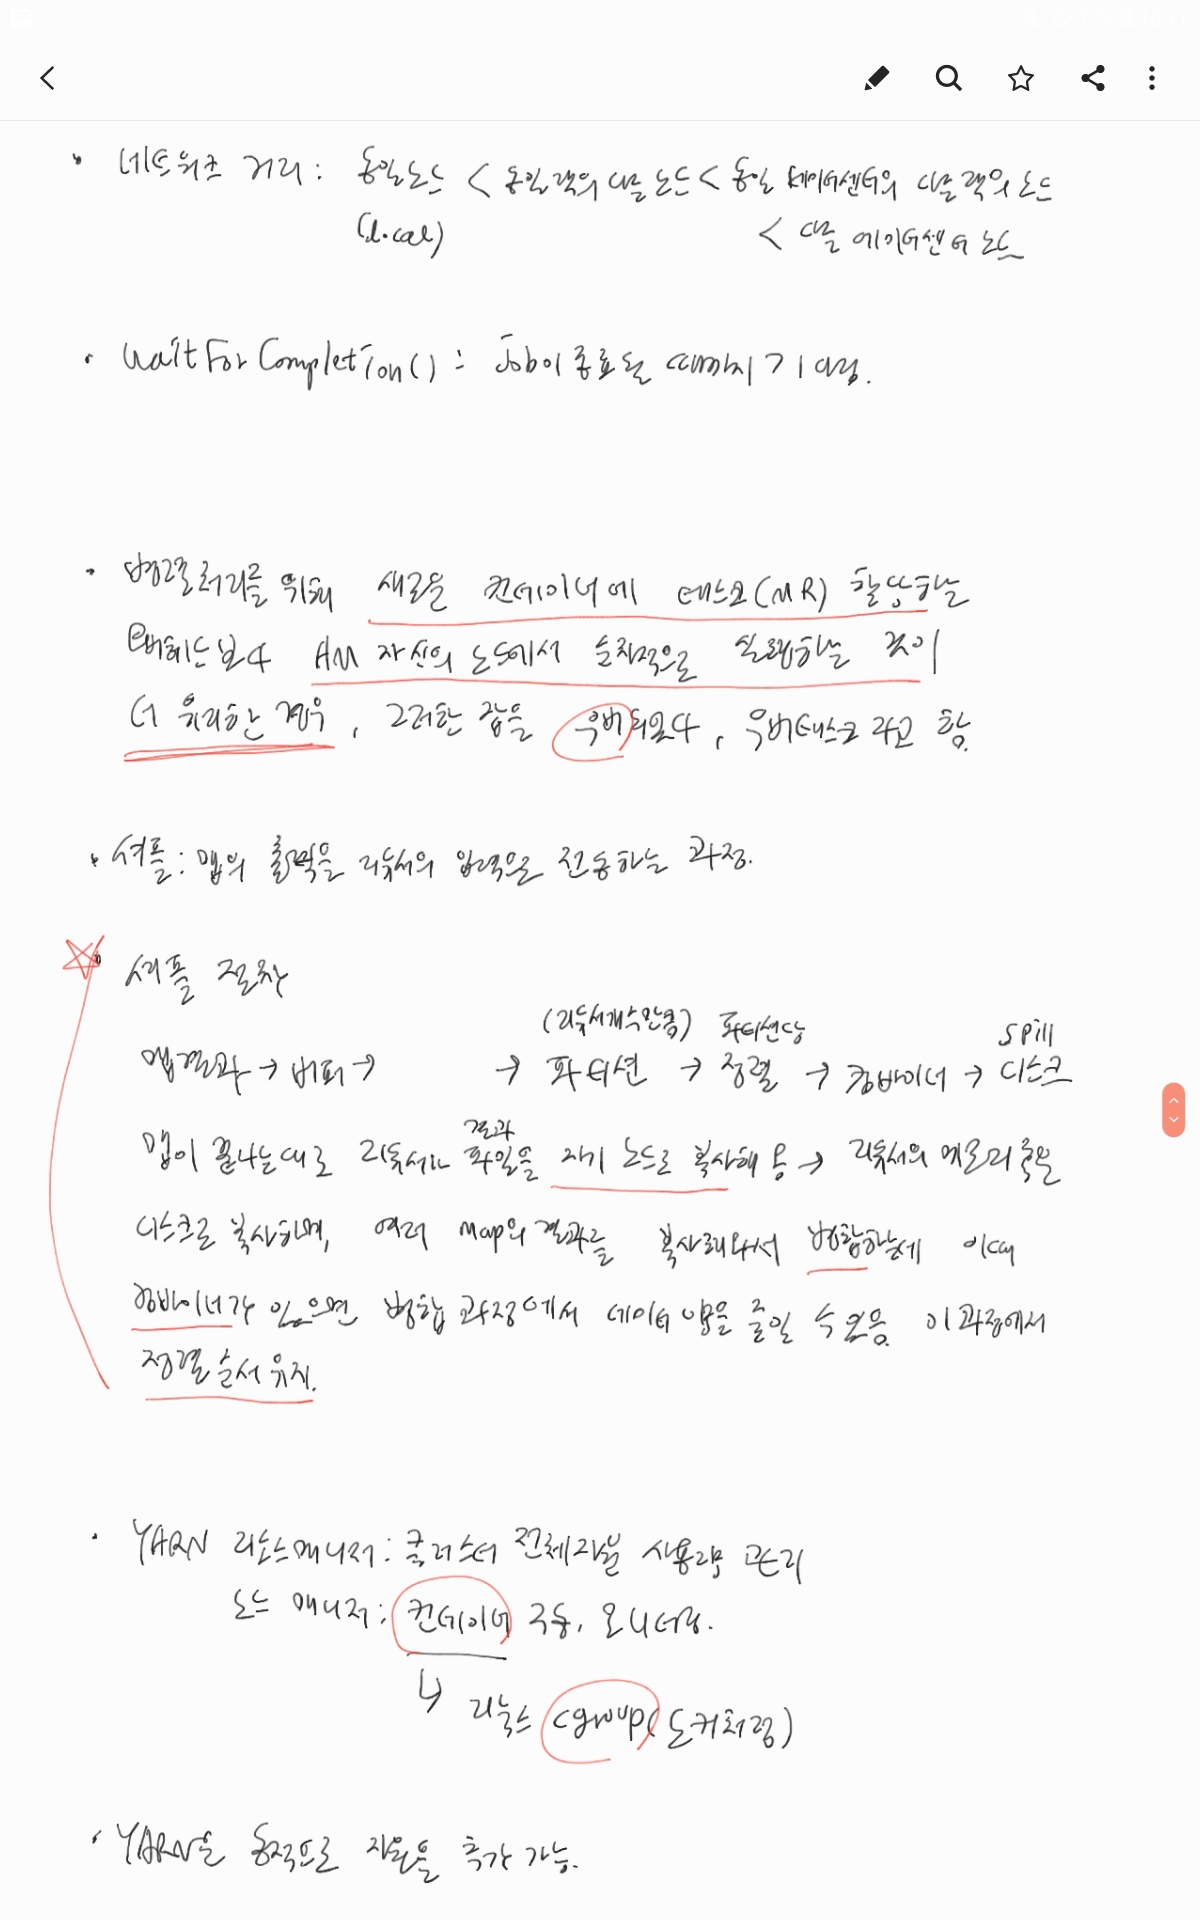 • 네트워크 거리 : 동일노드 < 동일랙의 다른 노드 < 동일 데이터센터의 다른 랙의 노드
(local) < 다른 데이터센터 노드
• waitForCompletion() : Job이 종료될 때까지 기다림.
• 병렬처리를 위해 새로운 컨테이너에 태스크(MR) 할당하는
오버헤드보다 AM 자신의 노드에서 순차적으로 실행하는 것이
더 유리한 경우, 그러한 잡을 우버되었다, 우버태스크 라고 함.
• 셔플 : 맵의 출력을 리듀서의 입력으로 전송하는 과정.
• 셔플 절차
(리듀서개수만큼) 파티션당 spill
맵결과 → 버퍼 → → 파티션 → 정렬 → 컴바이너 → 디스크
결과
맵이 끝나는대로 리듀서는 파일을 자기 노드로 복사해 옴 → 리듀서의 메모리 혹은
디스크로 복사하며, 여러 map의 결과를 복사해와서 병합하는데 이때
컴바이너가 있으면 병합 과정에서 데이터 양을 줄일 수 있음. 이 과정에서
정렬 순서 유지.
• YARN 리소스매니저 : 클러스터 전체자원 사용량 관리
노드 매니저 : 컨테이너 구동, 모니터링.
↳ 리눅스 cgroup (도커처럼)
• YARN은 동적으로 자원을 추가 가능.